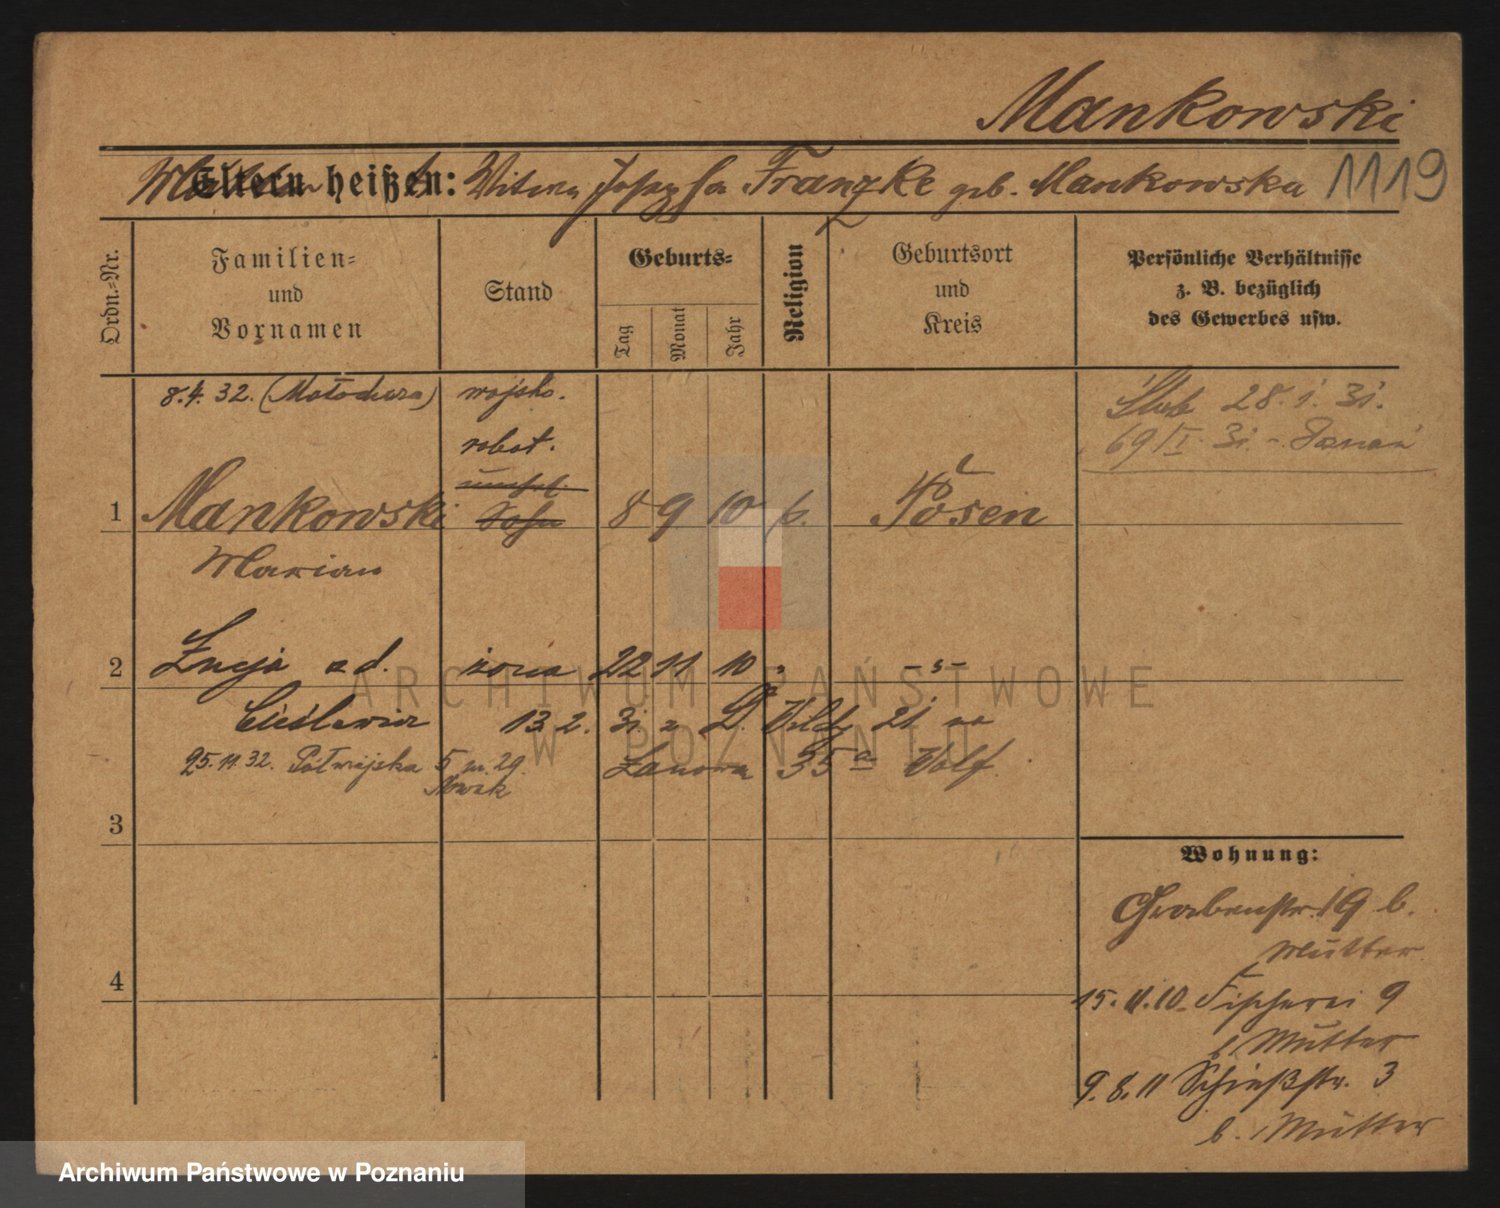 Mankowski
Eltern heißen: Witwe Josepha Franzke geb. Mankowska 1119
Ordn.-Nr.
Familien- und Vornamen
Stand
Geburts-
Tag
Monat
Jahr
Religion
Geburtsort und Kreis
Persönliche Verhältnisse z. B. bezüglich des Gewerbes usw.
8.4.32. (Małochera) wojsko.
Ślub 28.1.31.
69/I. 31. - Poznań
robot.
1 Mankowski Sohn 8 9 10 k. Posen
Marian
2 Łucja z d. żona 22 11 10 " - " -
Cieślewicz 13.2.31 z D. Wilda 21 na
25.11.32. Półwiejska 5 m. 29. Łanowa 35a Wolf.
Nowak
3
Wohnung:
Grabenstr. 19 b.
Mutter
4
15.11.10. Fischerei 9
b. Mutter
9.8.11 Schießstr. 3
b. Mutter
ARCHIWUM PAŃSTWOWE
W POZNANIU
Archiwum Państwowe w Poznaniu